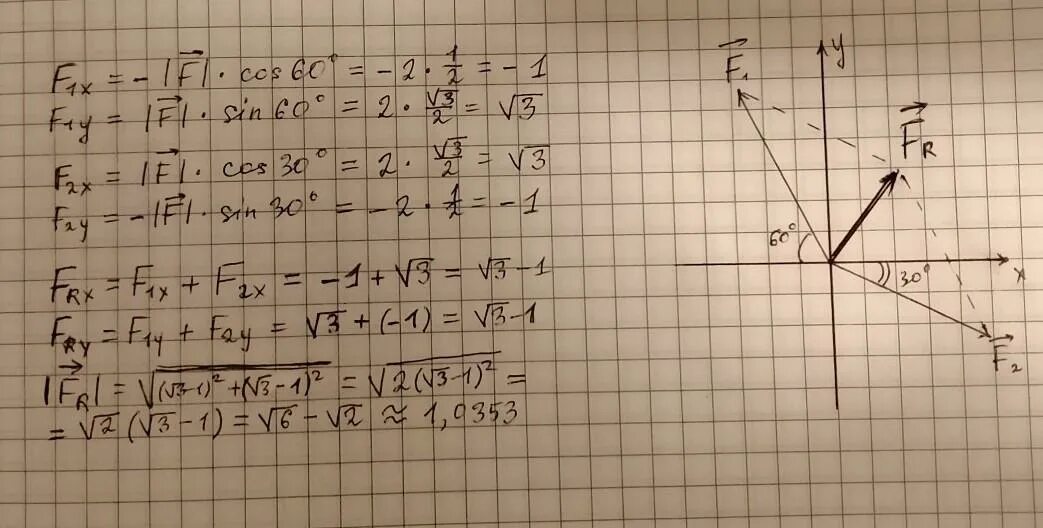 F₁ₓ = -|F⃗| · cos 60° = -2 · 1/2 = -1
F₁y = |F⃗| · sin 60° = 2 · √3/2 = √3
F₂ₓ = |F⃗| · cos 30° = 2 · √3/2 = √3
F₂y = -|F⃗| · sin 30° = -2 · 1/2 = -1
F_Rx = F₁ₓ + F₂ₓ = -1 + √3 = √3 - 1
F_Ry = F₁y + F₂y = √3 + (-1) = √3 - 1
|F⃗_R| = √((√3-1)² + (√3-1)²) = √(2(√3-1)²) =
= √2 (√3 - 1) = √6 - √2 ≈ 1,0353
y
F⃗₁
F⃗_R
60°
30°
x
F⃗₂